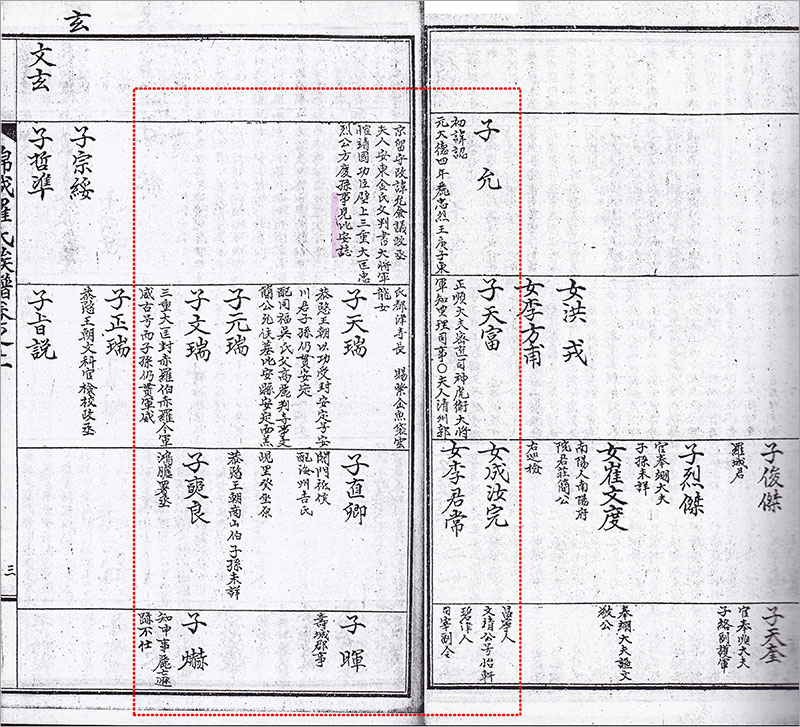 子允
初諱認
元大德四年麗忠烈王庚子東
女洪戎
女李方甫
子天富
正順大夫密直司神虎衛大將
軍知典理司事○夫人清州郭
子俊傑
羅城君
子烈傑
官奉翊大夫
子孫未詳
女崔文度
南陽人南陽府
院君莊簡公
左巡檢
女成汝完
女李君常
子天奎
官奉順大夫
子絡別護軍
奉翊大夫諡文
敬公
昌寧人
文靖公子怡軒
日宰副令
京留守改諱允僉議政丞
夫人安東金氏父判書大將軍
靖國功臣壁上三重大匡忠
烈公方慶孫事見比安誌
氏都津寺長 賜紫金魚袋雲
龍女
子天瑞
恭愍王朝以功受封安定子安
川君子孫仍貫安定
配同福吳氏父高麗判三司事文
簡公允住墓比安縣安定面羔
子元瑞
子文瑞
三重大匡封赤羅伯赤羅今軍
威古号而子孫仍貫軍威
子正瑞
恭愍王朝文科官檢校政丞
子直卿
閤門祗候
配海州吉氏
峴里癸坐原
恭愍王朝南山伯子孫未詳
子奭良
鴻臚署丞
子暉
壽城郡事
子爀
知申事麗亡遯
跡不仕
玄
文玄
子宗綏
子哲準
子旨説
錦城羅氏族譜卷之二
三